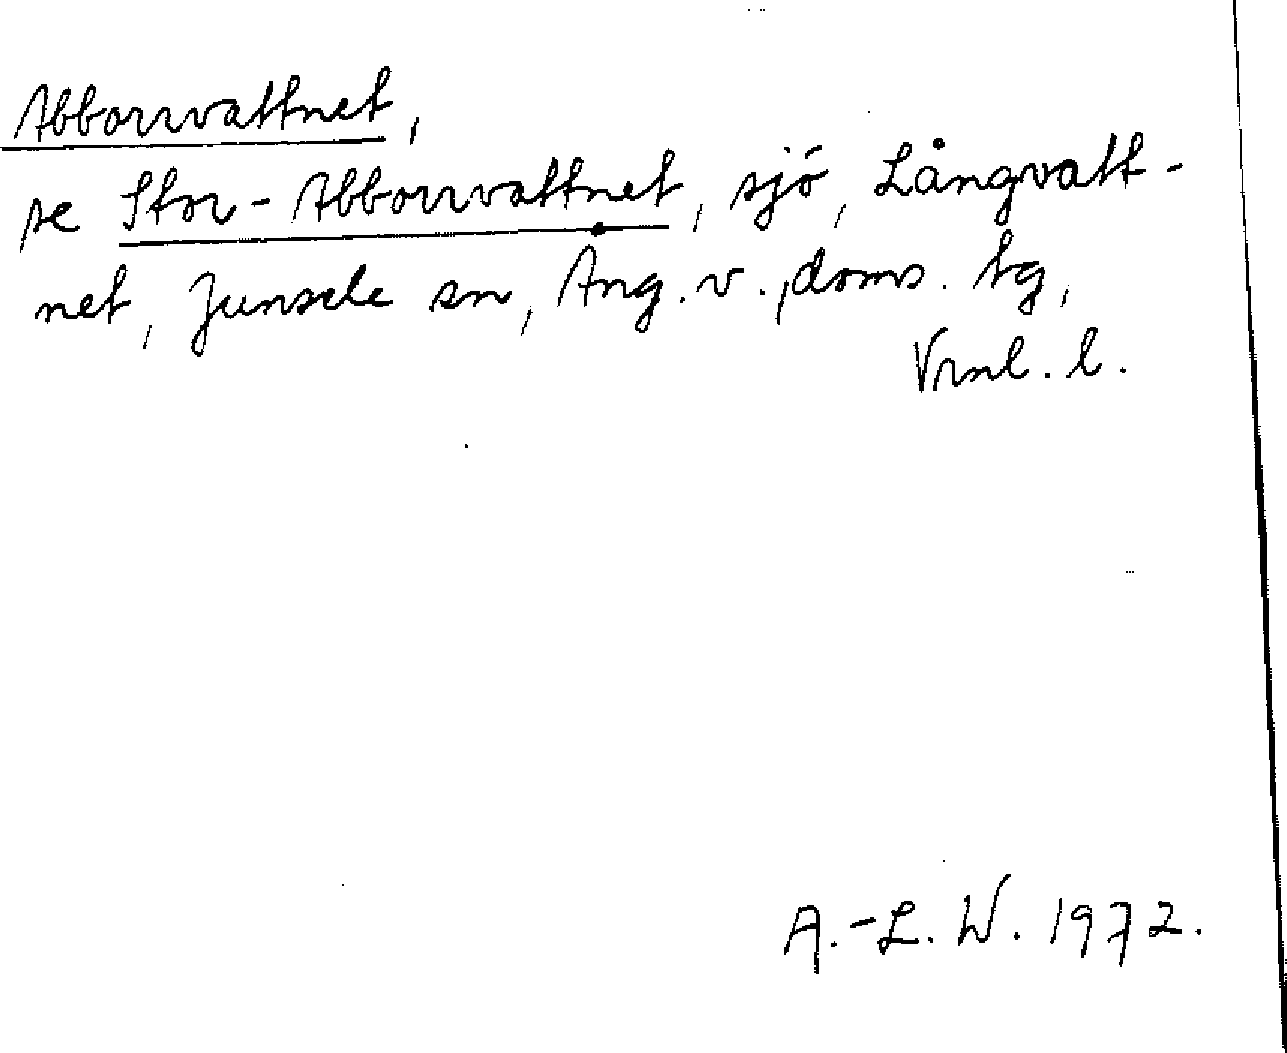 Abborrvattnet,
se Stor-Abborrvattnet, sjö, Långvatt-
net, Junsele sn, Ång. v., doms. tg,
Vrnl. l.
A.-L. W. 1972.